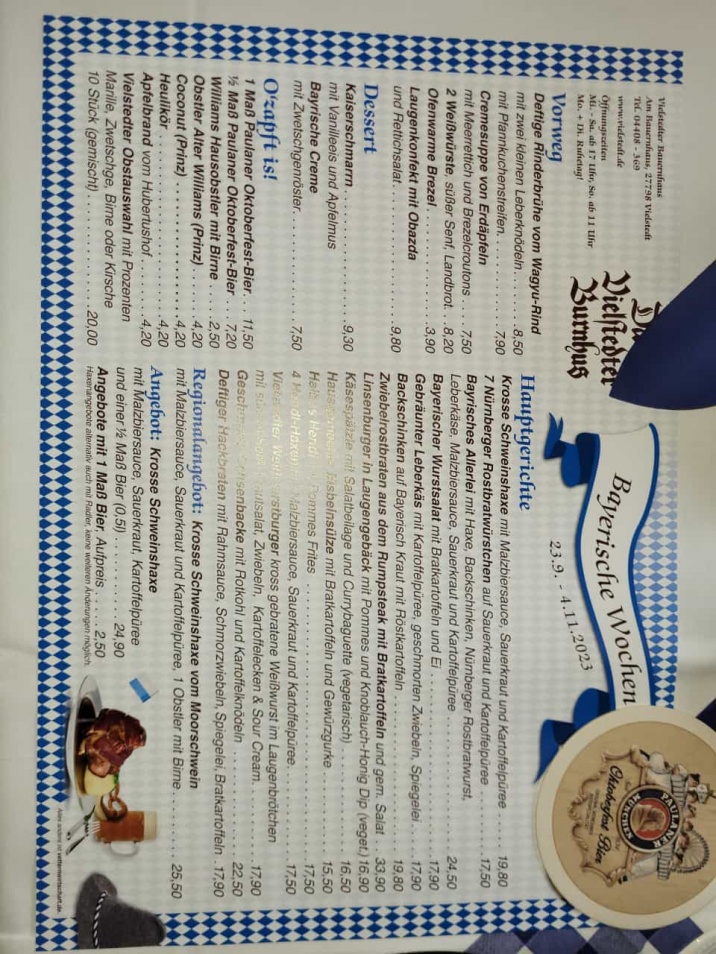 Vielstedter Bauernhaus
Am Bauernhaus, 27798 Vielstedt
Tel. 04408 - 369
www.vielstedt.de
Öffnungszeiten
Mi. - Sa. ab 17 Uhr, So. ab 11 Uhr
Mo. + Di. Ruhetag!
Vielstedter
Burnhus
Bayerische Wochen
23.9. - 4.11.2023
PAULANER
MÜNCHEN
Oktoberfest Bier
Vorweg
Deftige Rinderbrühe vom Wagyu-Rind
mit zwei kleinen Leberknödeln . . . . . . 8,50
mit Pfannkuchenstreifen. . . . . . . . . . 7,90
Cremesuppe von Erdäpfeln
mit Meerrettich und Brezelcroutons . . . 7,50
2 Weißwürste, süßer Senf, Landbrot. . 8,20
Ofenwarme Brezel . . . . . . . . . . . . 3,90
Laugenkonfekt mit Obazda
und Rettichsalat. . . . . . . . . . . . . . 9,80
Dessert
Kaiserschmarrn. . . . . . . . . . . . . . 9,30
mit Vanilleeis und Apfelmus
Bayrische Creme
mit Zwetschgenröster. . . . . . . . . . . 7,50
O'zapft is!
1 Maß Paulaner Oktoberfest-Bier. . 11,50
½ Maß Paulaner Oktoberfest-Bier . . . 7,20
Williams Hausobstler mit Birne . . . 2,50
Obstler Alter Williams (Prinz) . . . . . 4,20
Coconut (Prinz) . . . . . . . . . . . . . 4,20
Heulikör . . . . . . . . . . . . . . . . . 4,20
Apfelbrand vom Hubertushof . . . . . . 4,20
Vielstedter Obstauswahl mit Prozenten
Marille, Zwetschge, Birne oder Kirsche
10 Stück (gemischt) . . . . . . . . . . 20,00
Hauptgerichte
Krosse Schweinshaxe mit Malzbiersauce, Sauerkraut und Kartoffelpüree . . . . 19,80
7 Nürnberger Rostbratwürstchen auf Sauerkraut und Kartoffelpüree . . . . 17,50
Bayrisches Allerlei mit Haxe, Backschinken, Nürnberger Rostbratwurst,
Leberkäse, Malzbiersauce, Sauerkraut und Kartoffelpüree . . . . 24,50
Bayerischer Wurstsalat mit Bratkartoffeln und Ei . . . . 17,90
Gebräunter Leberkäs mit Kartoffelpüree, geschmorten Zwiebeln, Spiegelei . . . . 17,90
Backschinken auf Bayerisch Kraut mit Röstkartoffeln . . . . 19,80
Zwiebelrostbraten aus dem Rumpsteak mit Bratkartoffeln und gem. Salat . . 33,90
Linsenburger in Laugengebäck mit Pommes und Knoblauch-Honig Dip (veget.) 16,90
Käsespätzle mit Salatbeilage und Currybaguette (vegetarisch) . . . . 16,50
Eisbeinsülze mit Bratkartoffeln und Gewürzgurke . . . . 15,50
Hendl Pommes Frites . . . . 17,50
4 Hendl-Haxen Malzbiersauce, Sauerkraut und Kartoffelpüree. . . . 17,50
kross gebratene Weißwurst im Laugenbrötchen
mit Krautsalat, Zwiebeln, Kartoffelecken & Sour Cream. . . . 17,90
Ochsenbacke mit Rotkohl und Kartoffelknödeln . . . . 22,50
Deftiger Hackbraten mit Rahmsauce, Schmorzwiebeln, Spiegelei, Bratkartoffeln 17,90
Regionalangebot: Krosse Schweinshaxe vom Moorschwein
mit Malzbiersauce, Sauerkraut und Kartoffelpüree, 1 Obstler mit Birne . . . . 25,50
Angebot: Krosse Schweinshaxe
mit Malzbiersauce, Sauerkraut, Kartoffelpüree
und einer ½ Maß Bier (0,5l) . . . . . . . . . 24,90
Angebote mit 1 Maß Bier, Aufpreis . . . . 2,50
Haxenangebote alternativ auch mit Radler, keine weiteren Änderungen möglich